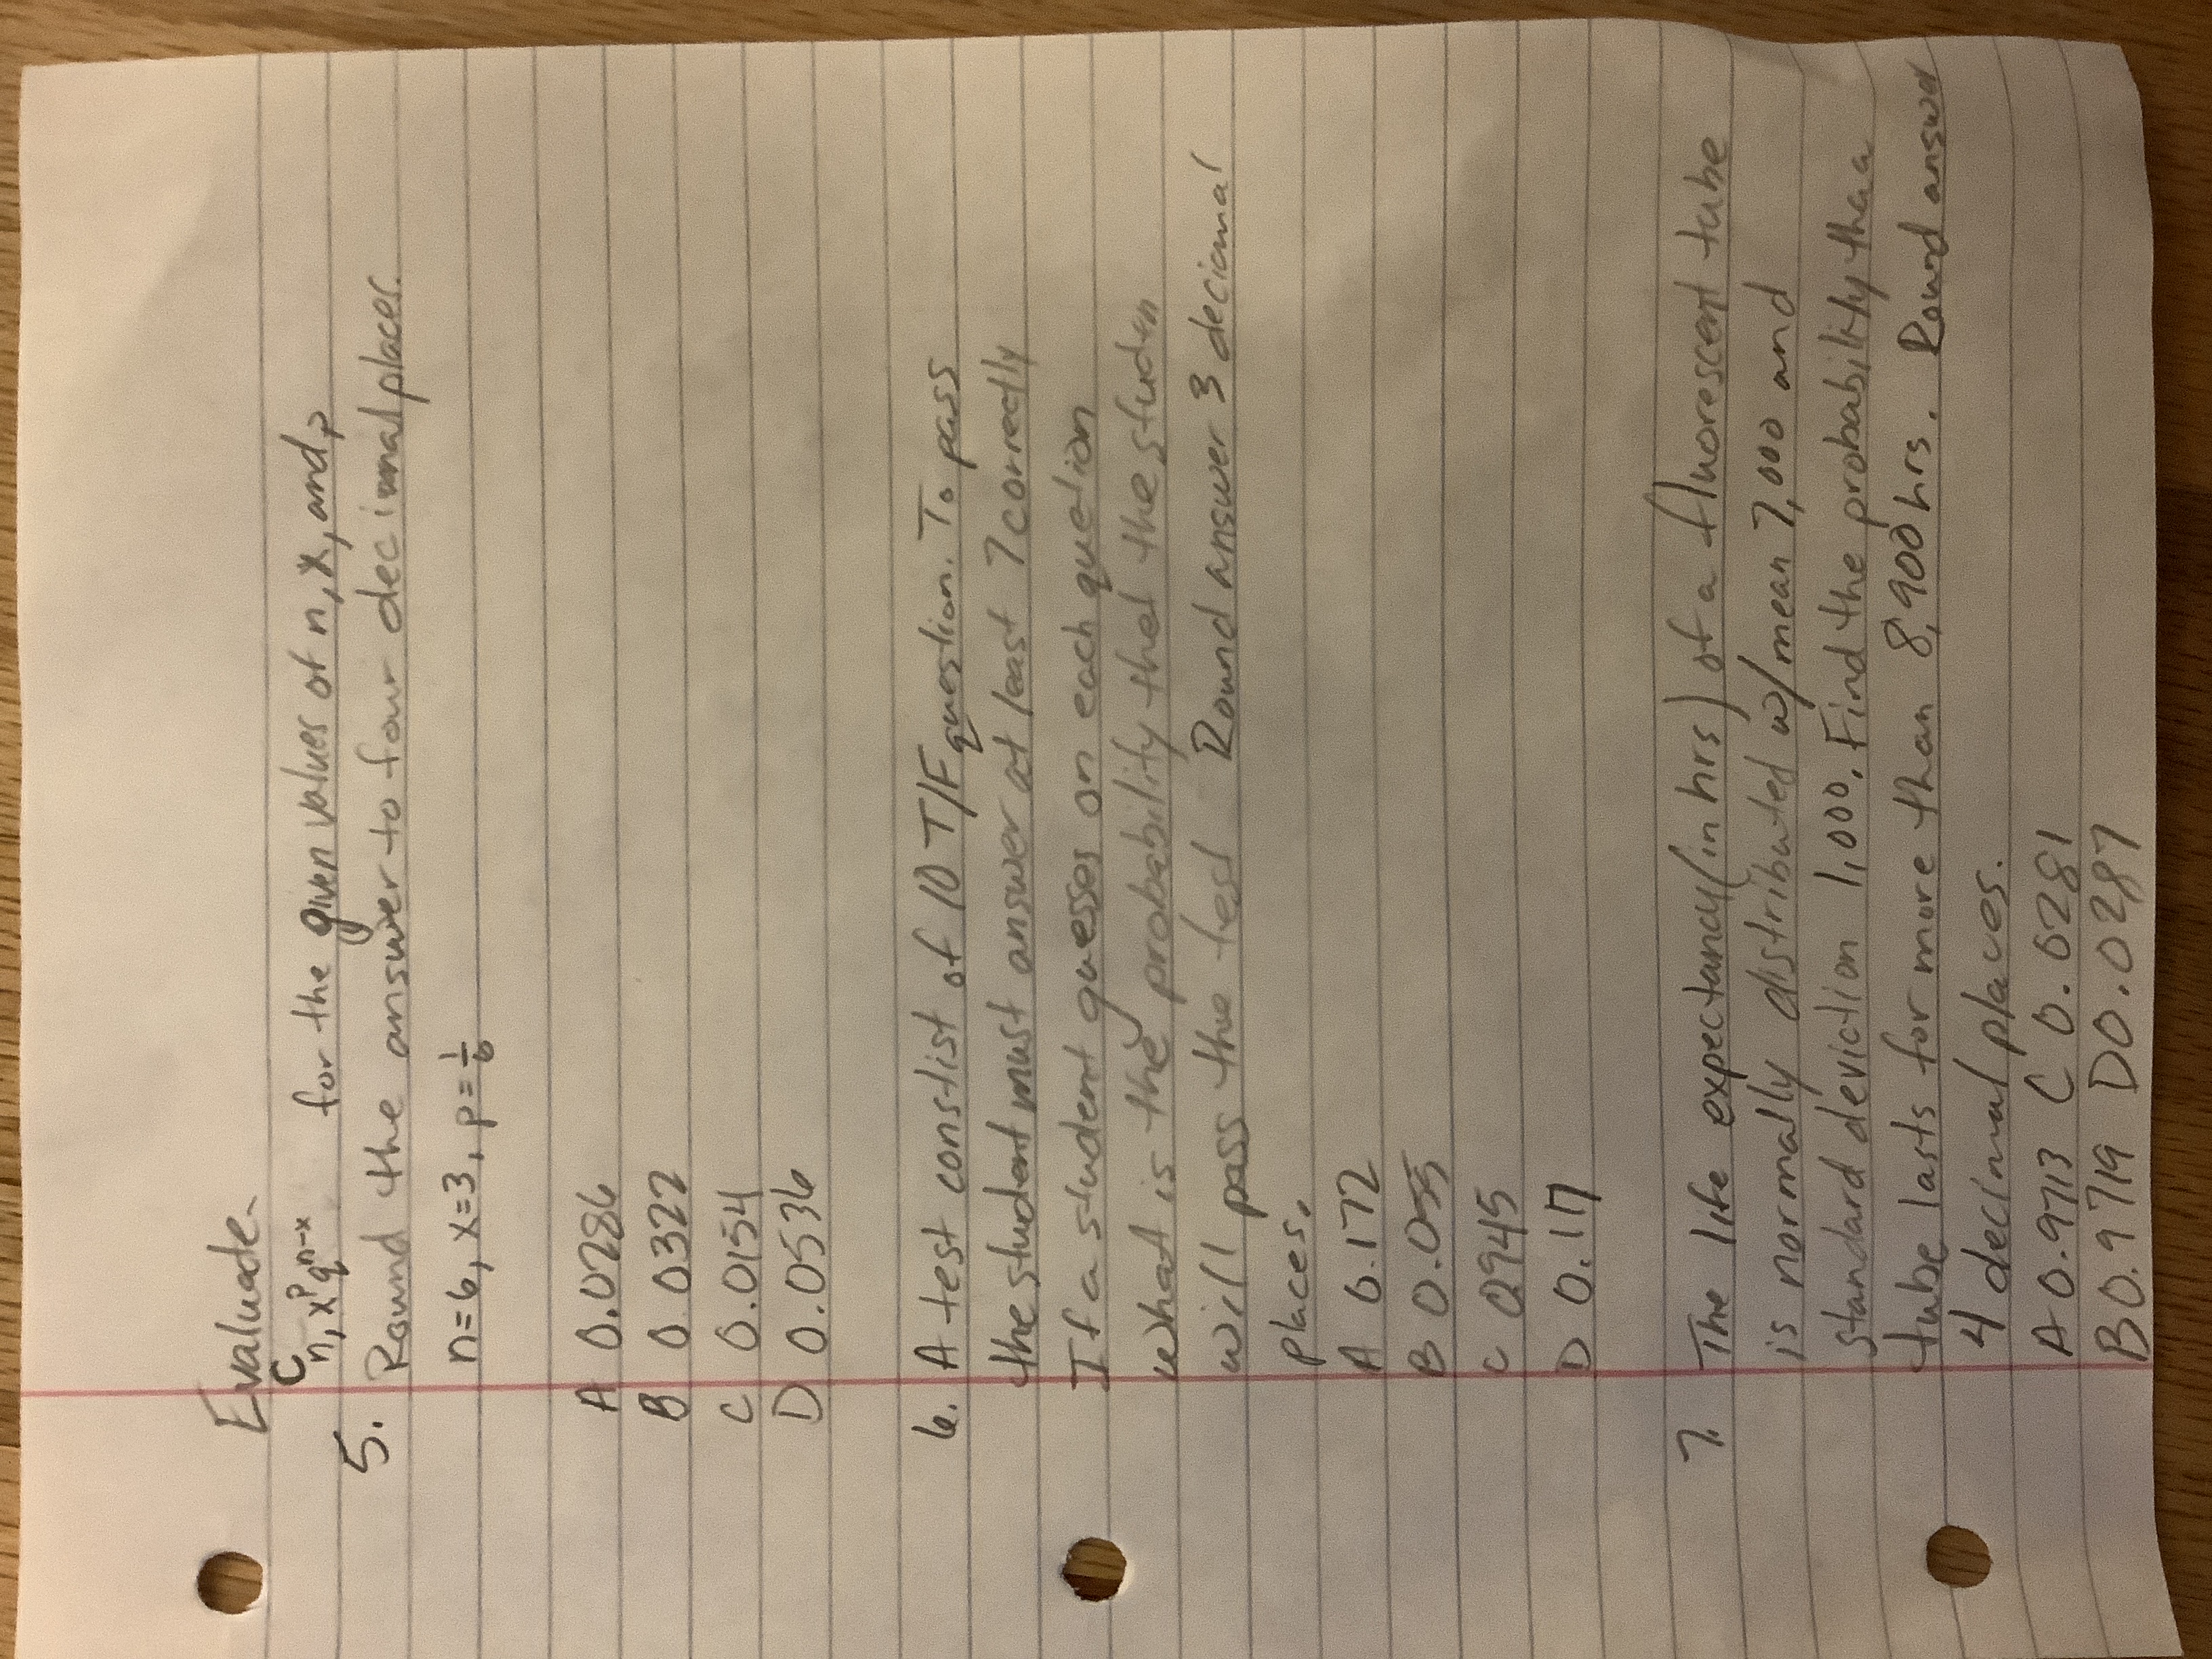 Evaluate
C n, x p q n-x for the given values of n, x, and p
5. Round the answer to four decimal places.
n=6, x=3, p=1/6
A 0.0286
B 0.0322
C 0.0154
D 0.0536
6. A test constist of 10 T/F question. To pass
the student must answer at least 7 correctly
If a student guesses on each quetion
what is the probability thet the studen
will pass the test Round answer 3 decimal
places.
A 0.172
B 0.055
C 0.945
D 0.117
7. The life expectancy (in hrs) of a fluorescent tube
is normally distributed w/mean 7,000 and
standard deviction 1,000. Find the probability tha a
tube lasts for more than 8,900 hrs. Round answer
4 decimal places.
A 0.9713 C 0.0281
B 0.9719 D 0.0287